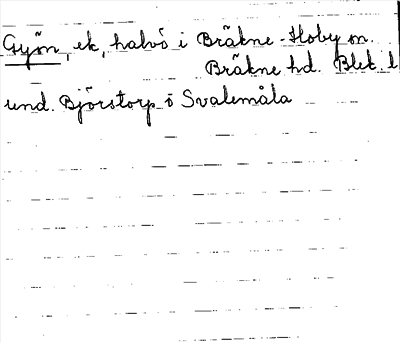 Gyön, ek, halvö i Bräkne-Hoby sn.
Bräkne hd. Blek. l
und. Björstorp o Svalemåla